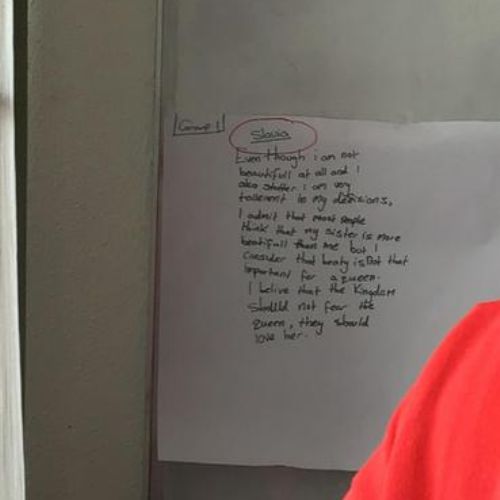 Group 1
Slavia
Even though i am not
beautifull at all and I
also stutter i am very
tollerent in my decisions,
I admit that most people
think that my sister is more
beatifull than me but I
consider that beaty is not that
important for a queen.
I belive that the Kingdom
should not fear the
queen, they should
love her.